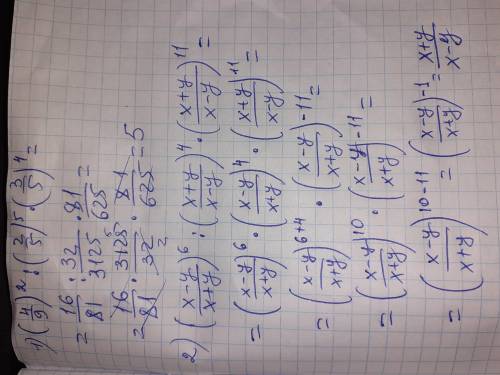 1) (4/9)² : (2/5)⁵ · (3/5)⁴ =
= 16/81 : 32/3125 · 81/625 =
= 16/81 · 3125/32 · 81/625 = 5
2) ((x-y)/(x+y))⁶ : ((x+y)/(x-y))⁴ · ((x+y)/(x-y))¹¹ =
= ((x-y)/(x+y))⁶ · ((x-y)/(x+y))⁴ · ((x+y)/(x-y))¹¹ =
= ((x-y)/(x+y))⁶⁺⁴ · ((x-y)/(x+y))⁻¹¹ =
= ((x-y)/(x+y))¹⁰ · ((x-y)/(x+y))⁻¹¹ =
= ((x-y)/(x+y))¹⁰⁻¹¹ = ((x-y)/(x+y))⁻¹ = (x+y)/(x-y)